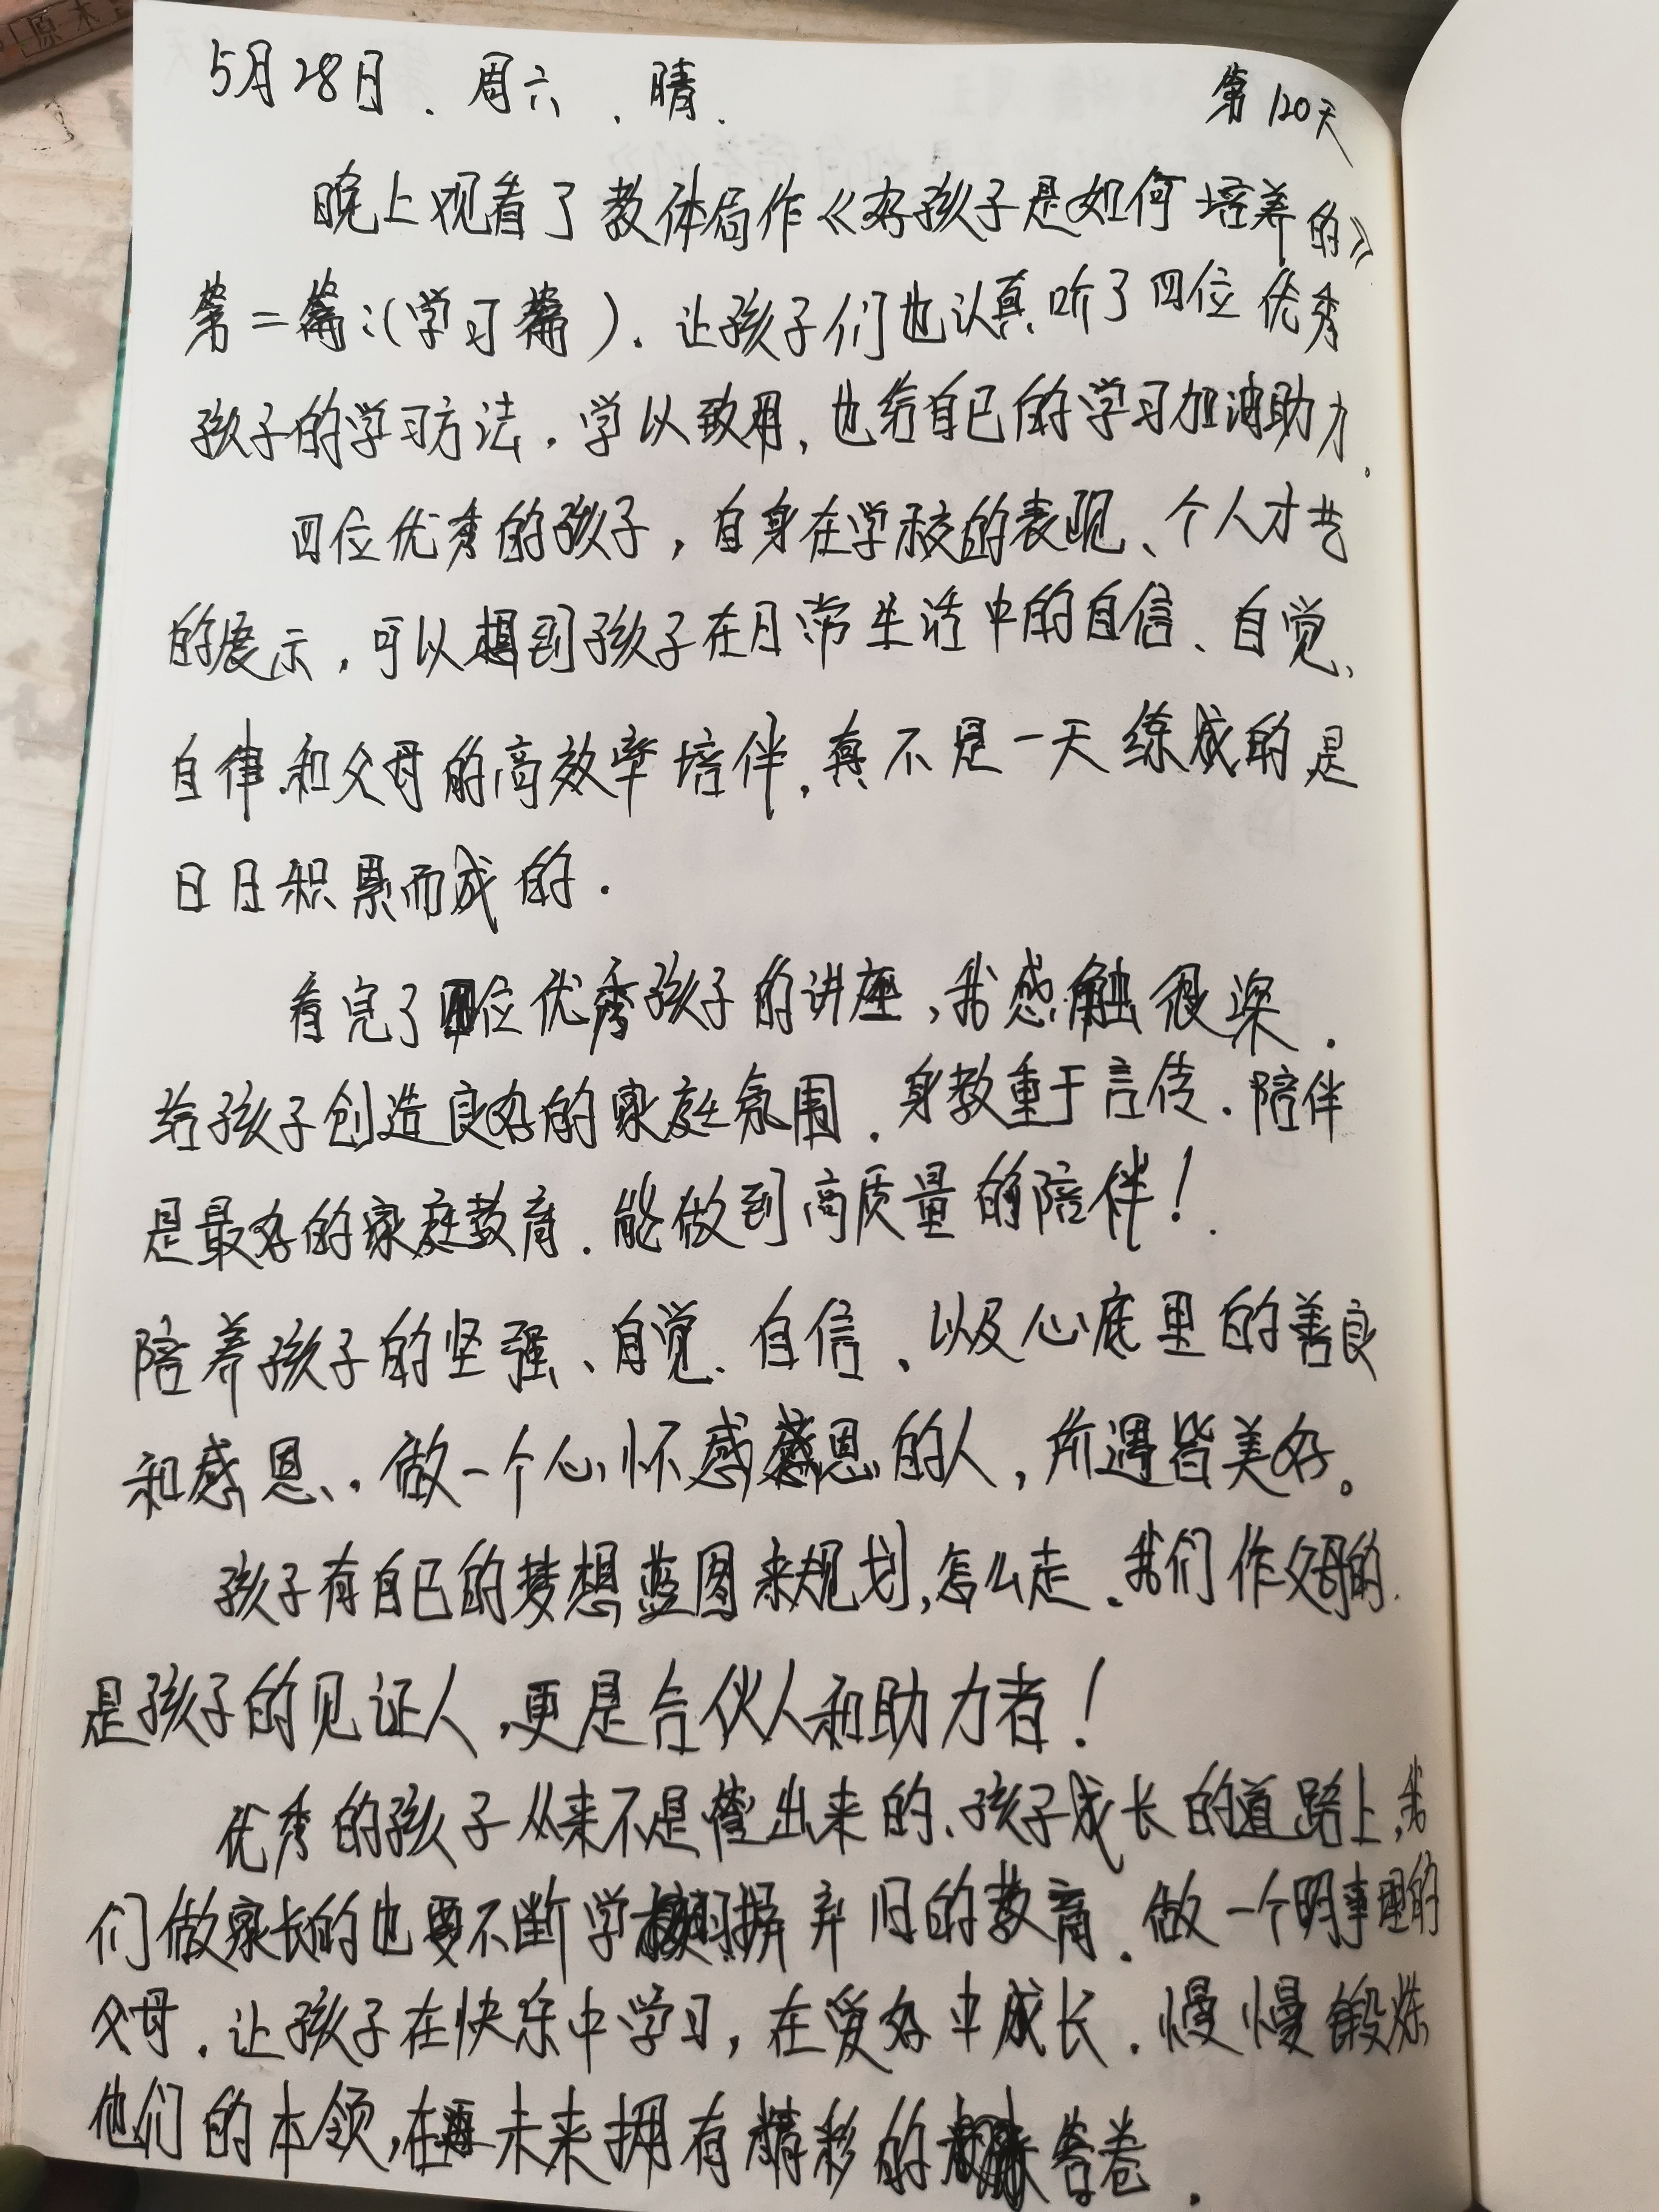 原木
5月28日.周六.晴.
第120天
晚上观看了教体局作《好孩子是如何培养的》
第二篇:(学习篇).让孩子们也认真听了四位优秀
孩子的学习方法.学以致用,也给自己的学习加油助力。
四位优秀的孩子,自身在学校的表现、个人才艺
的展示,可以想到孩子在日常生活中的自信、自觉、
自律.和父母的高效率培伴,真不是一天练成的是
日月积累而成的.
看完了四位优秀孩子的讲座,我感触很深.
给孩子创造良好的家庭氛围.身教重于言传.陪伴
是最好的家庭教育.能做到高质量的陪伴!
陪养孩子的坚强、自觉、自信、以及心底里的善良
和感恩、.做一个心怀感恩的人,所遇皆美好。
孩子有自己的梦想蓝图来规划,怎么走.我们作父母的.
是孩子的见证人,更是合伙人和助力者!
优秀的孩子从来不是管出来的、孩子成长的道路上,我
们做家长的也要不断学习摒弃旧的教育.做一个明事理的
父母.让孩子在快乐中学习,在爱好中成长.慢慢锻炼
他们的本领,在未来拥有精彩的答卷.